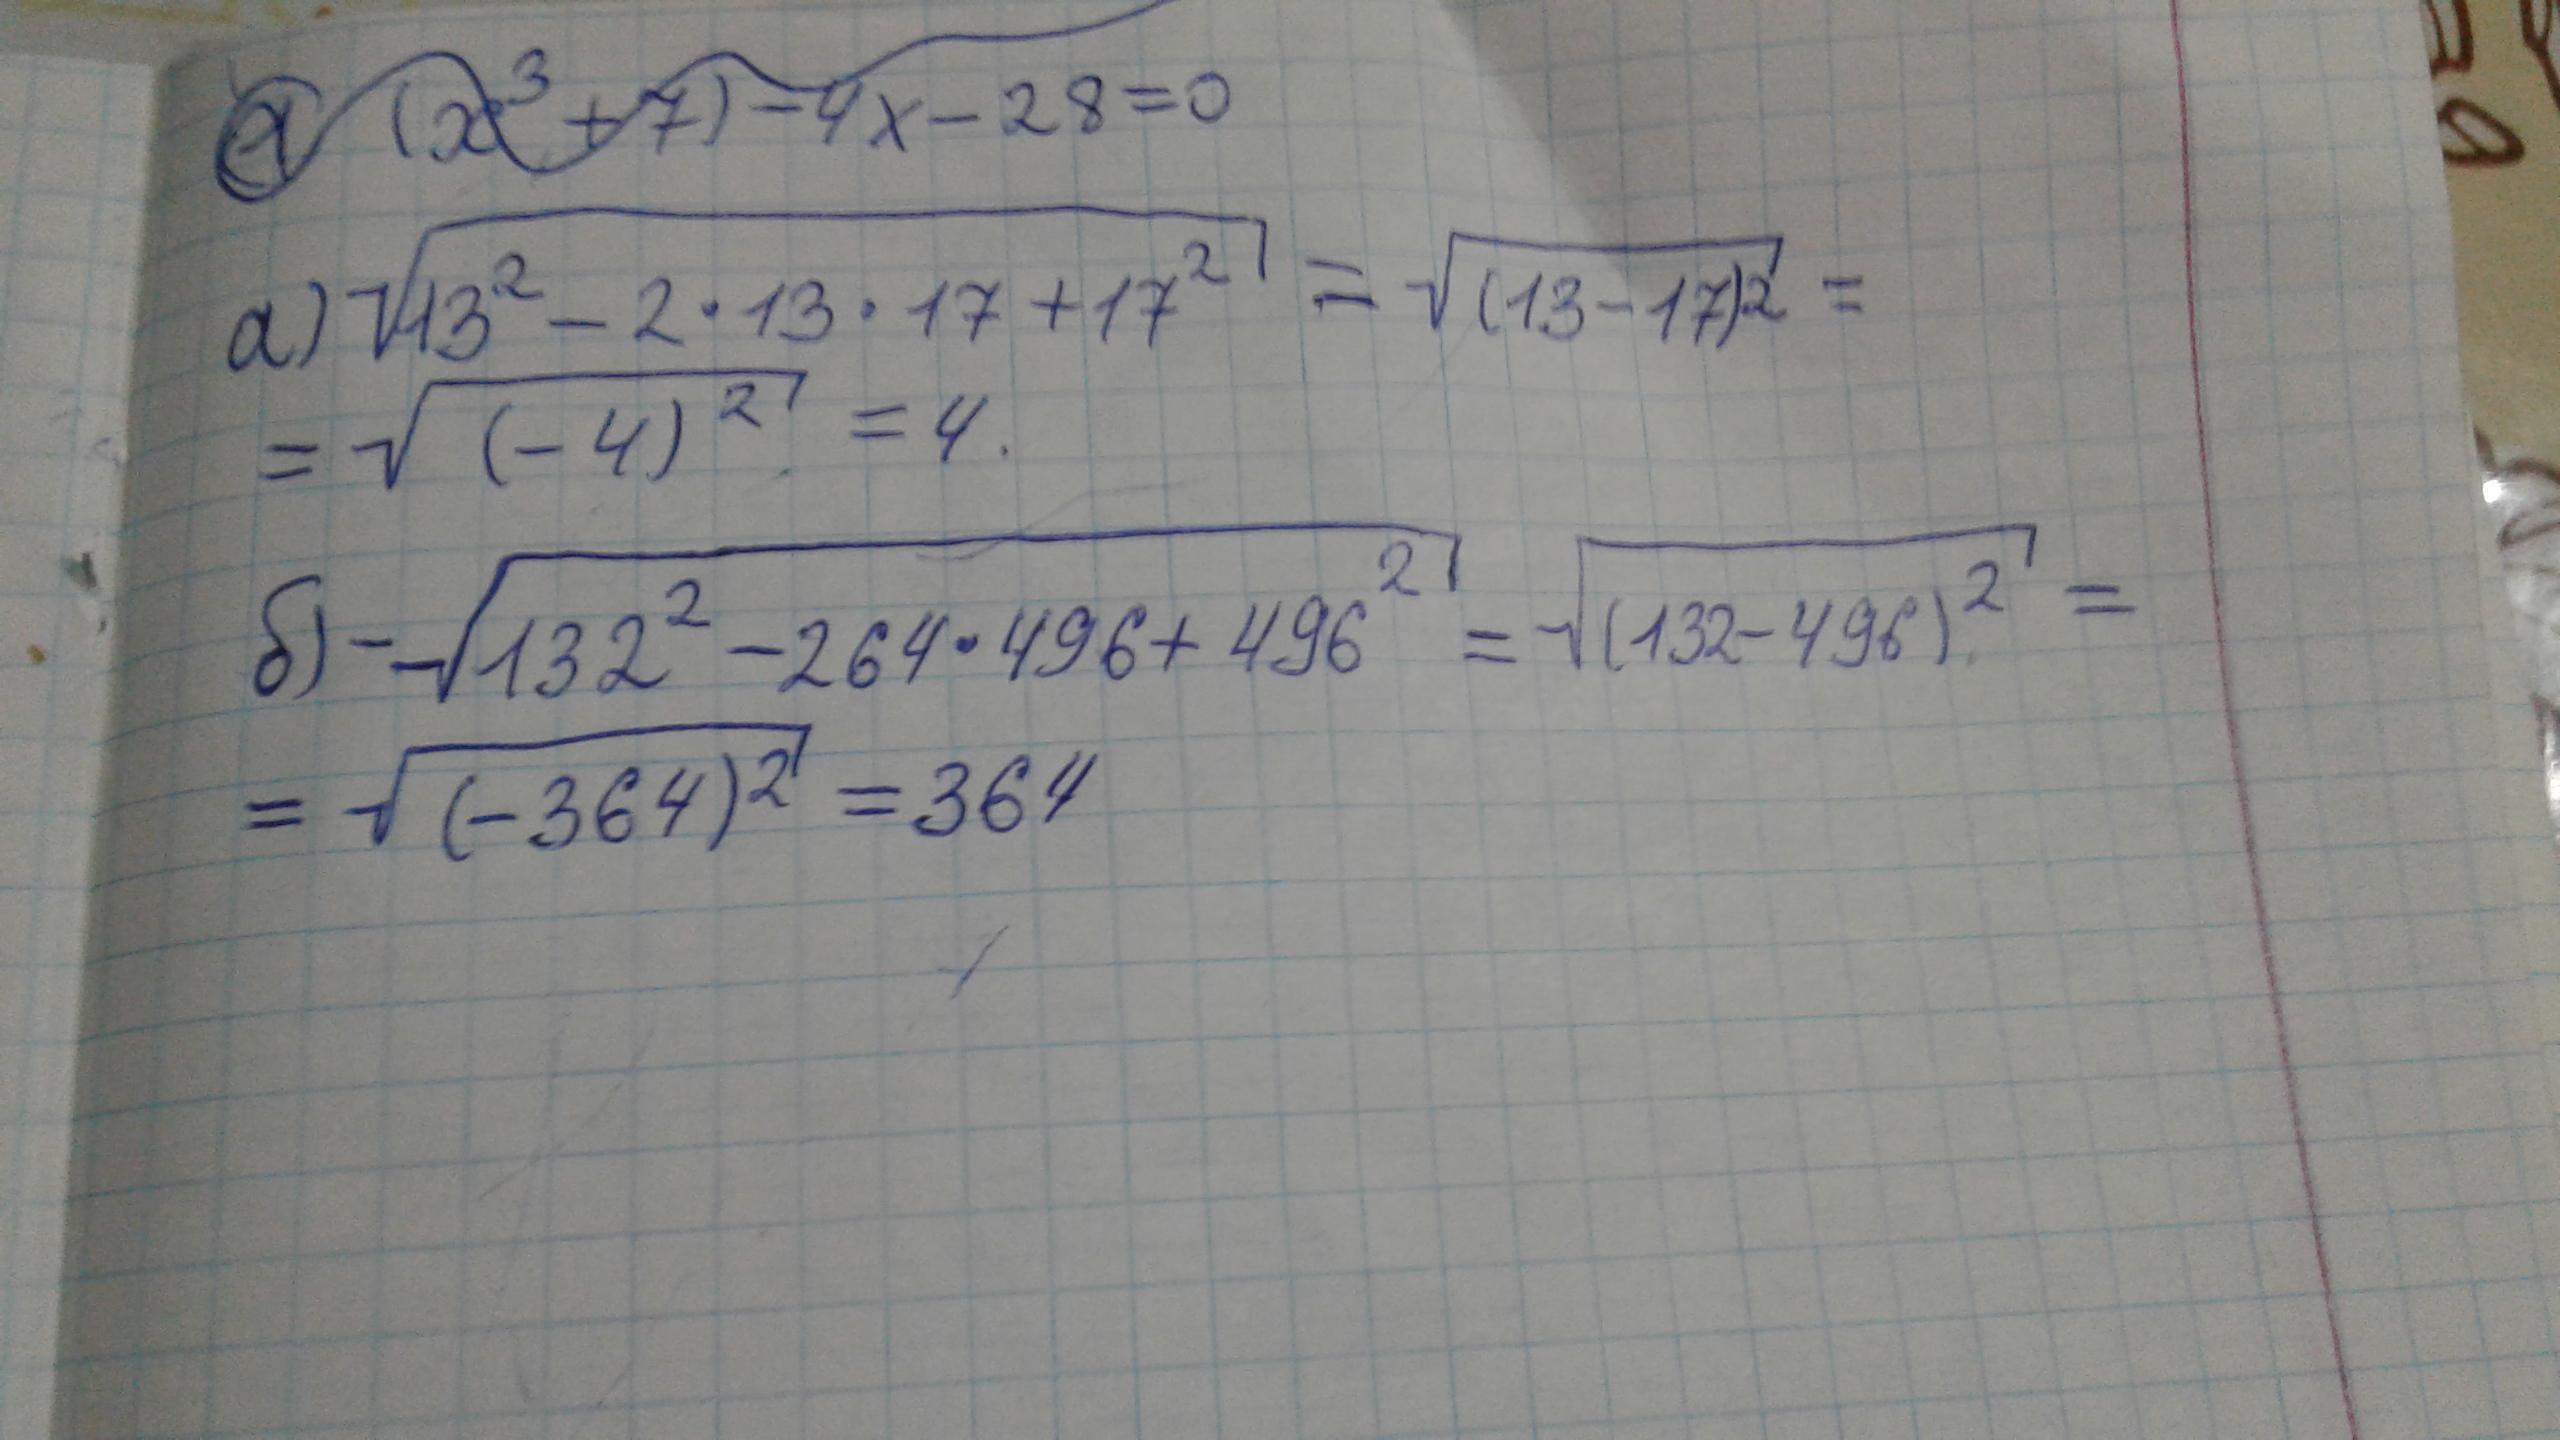 (x³+7)-4x-28=0
а) √(13²-2·13·17+17²) = √((13-17)²) =
= √((-4)²) = 4.
б) -√(132²-264·496+496²) = √((132-496)²) =
= √((-364)²) = 364